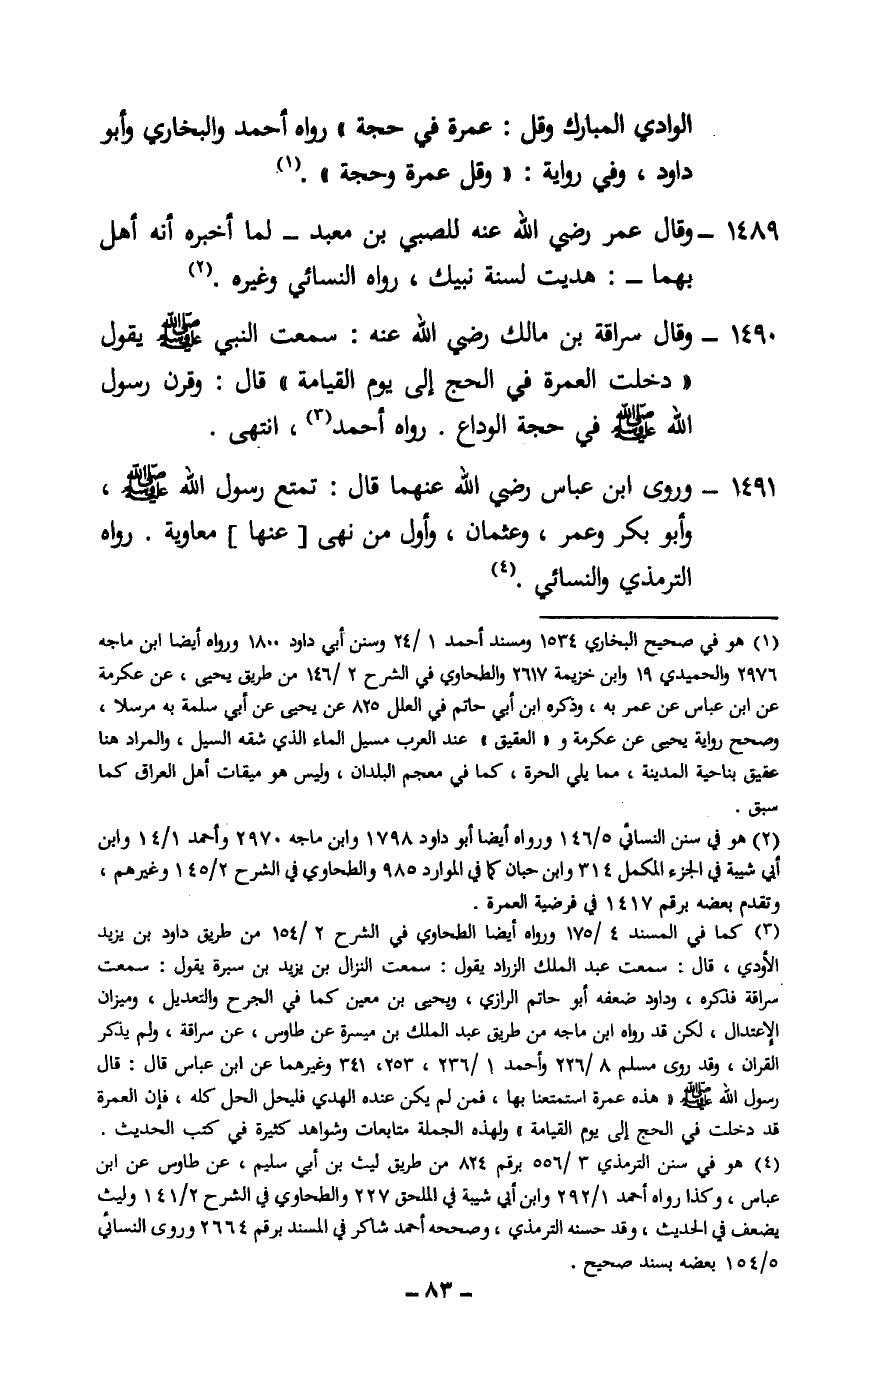 الوادي المبارك وقل : عمرة في حجة » رواه أحمد والبخاري وأبو
داود ، وفي رواية : « وقل عمرة وحجة » .(١)
١٤٨٩ – وقال عمر رضي الله عنه للصبي بن معبد – لما أخبره أنه أهل
بهما – : هديت لسنة نبيك ، رواه النسائي وغيره .(٢)
١٤٩٠ – وقال سراقة بن مالك رضي الله عنه : سمعت النبي ﷺ يقول
« دخلت العمرة في الحج إلى يوم القيامة » قال : وقرن رسول
الله ﷺ في حجة الوداع . رواه أحمد(٣) ، انتهى .
١٤٩١ – وروى ابن عباس رضي الله عنهما قال : تمتع رسول الله ﷺ ،
وأبو بكر وعمر ، وعثمان ، وأول من نهى [ عنها ] معاوية . رواه
الترمذي والنسائي .(٤)
(١) هو في صحيح البخاري ١٥٣٤ ومسند أحمد ١ /٢٤ وسنن أبي داود ١٨٠٠ ورواه أيضا ابن ماجه
٢٩٧٦ والحميدي ١٩ وابن خزيمة ٢٦١٧ والطحاوي في الشرح ٢ /١٤٦ من طريق يحيى ، عن عكرمة
عن ابن عباس عن عمر به ، وذكره ابن أبي حاتم في العلل ٨٢٥ عن يحيى عن أبي سلمة به مرسلا ،
وصحح رواية يحيى عن عكرمة و « العقيق » عند العرب مسيل الماء الذي شقه السيل ، والمراد هنا
عقيق بناحية المدينة ، مما يلي الحرة ، كما في معجم البلدان ، وليس هو ميقات أهل العراق كما
سبق .
(٢) هو في سنن النسائي ١٤٦/٥ ورواه أيضا أبو داود ١٧٩٨ وابن ماجه ٢٩٧٠ وأحمد ١٤/١ وابن
أبي شيبة في الجزء المكمل ٣١٤ وابن حبان كما في الموارد ٩٨٥ والطحاوي في الشرح ١٤٥/٢ وغيرهم ،
وتقدم بعضه برقم ١٤١٧ في فرضية العمرة .
(٣) كما في المسند ٤ /١٧٥ ورواه أيضا الطحاوي في الشرح ٢ /١٥٤ من طريق داود بن يزيد
الأودي ، قال : سمعت عبد الملك الزراد يقول : سمعت النزال بن يزيد بن سبرة يقول : سمعت
سراقة فذكره ، وداود ضعفه أبو حاتم الرازي ، ويحيى بن معين كما في الجرح والتعديل ، وميزان
الإعتدال ، لكن قد رواه ابن ماجه من طريق عبد الملك بن ميسرة عن طاوس ، عن سراقة ، ولم يذكر
القران ، وقد روى مسلم ٨ /٢٢٦ وأحمد ١ /٢٣٦ ، ٢٥٣، ٣٤١ وغيرهما عن ابن عباس قال : قال
رسول الله ﷺ « هذه عمرة استمتعنا بها ، فمن لم يكن عنده الهدي فليحل الحل كله ، فإن العمرة
قد دخلت في الحج إلى يوم القيامة » ولهذه الجملة متابعات وشواهد كثيرة في كتب الحديث .
(٤) هو في سنن الترمذي ٣ /٥٥٦ برقم ٨٢٤ من طريق ليث بن أبي سليم ، عن طاوس عن ابن
عباس ، وكذا رواه أحمد ٢٩٢/١ وابن أبي شيبة في الملحق ٢٢٧ والطحاوي في الشرح ١٤١/٢ وليث
يضعف في الحديث ، وقد حسنه الترمذي ، وصححه أحمد شاكر في المسند برقم ٢٦٦٤ وروى النسائي
١٥٤/٥ بعضه بسند صحيح .
– ٨٣ –